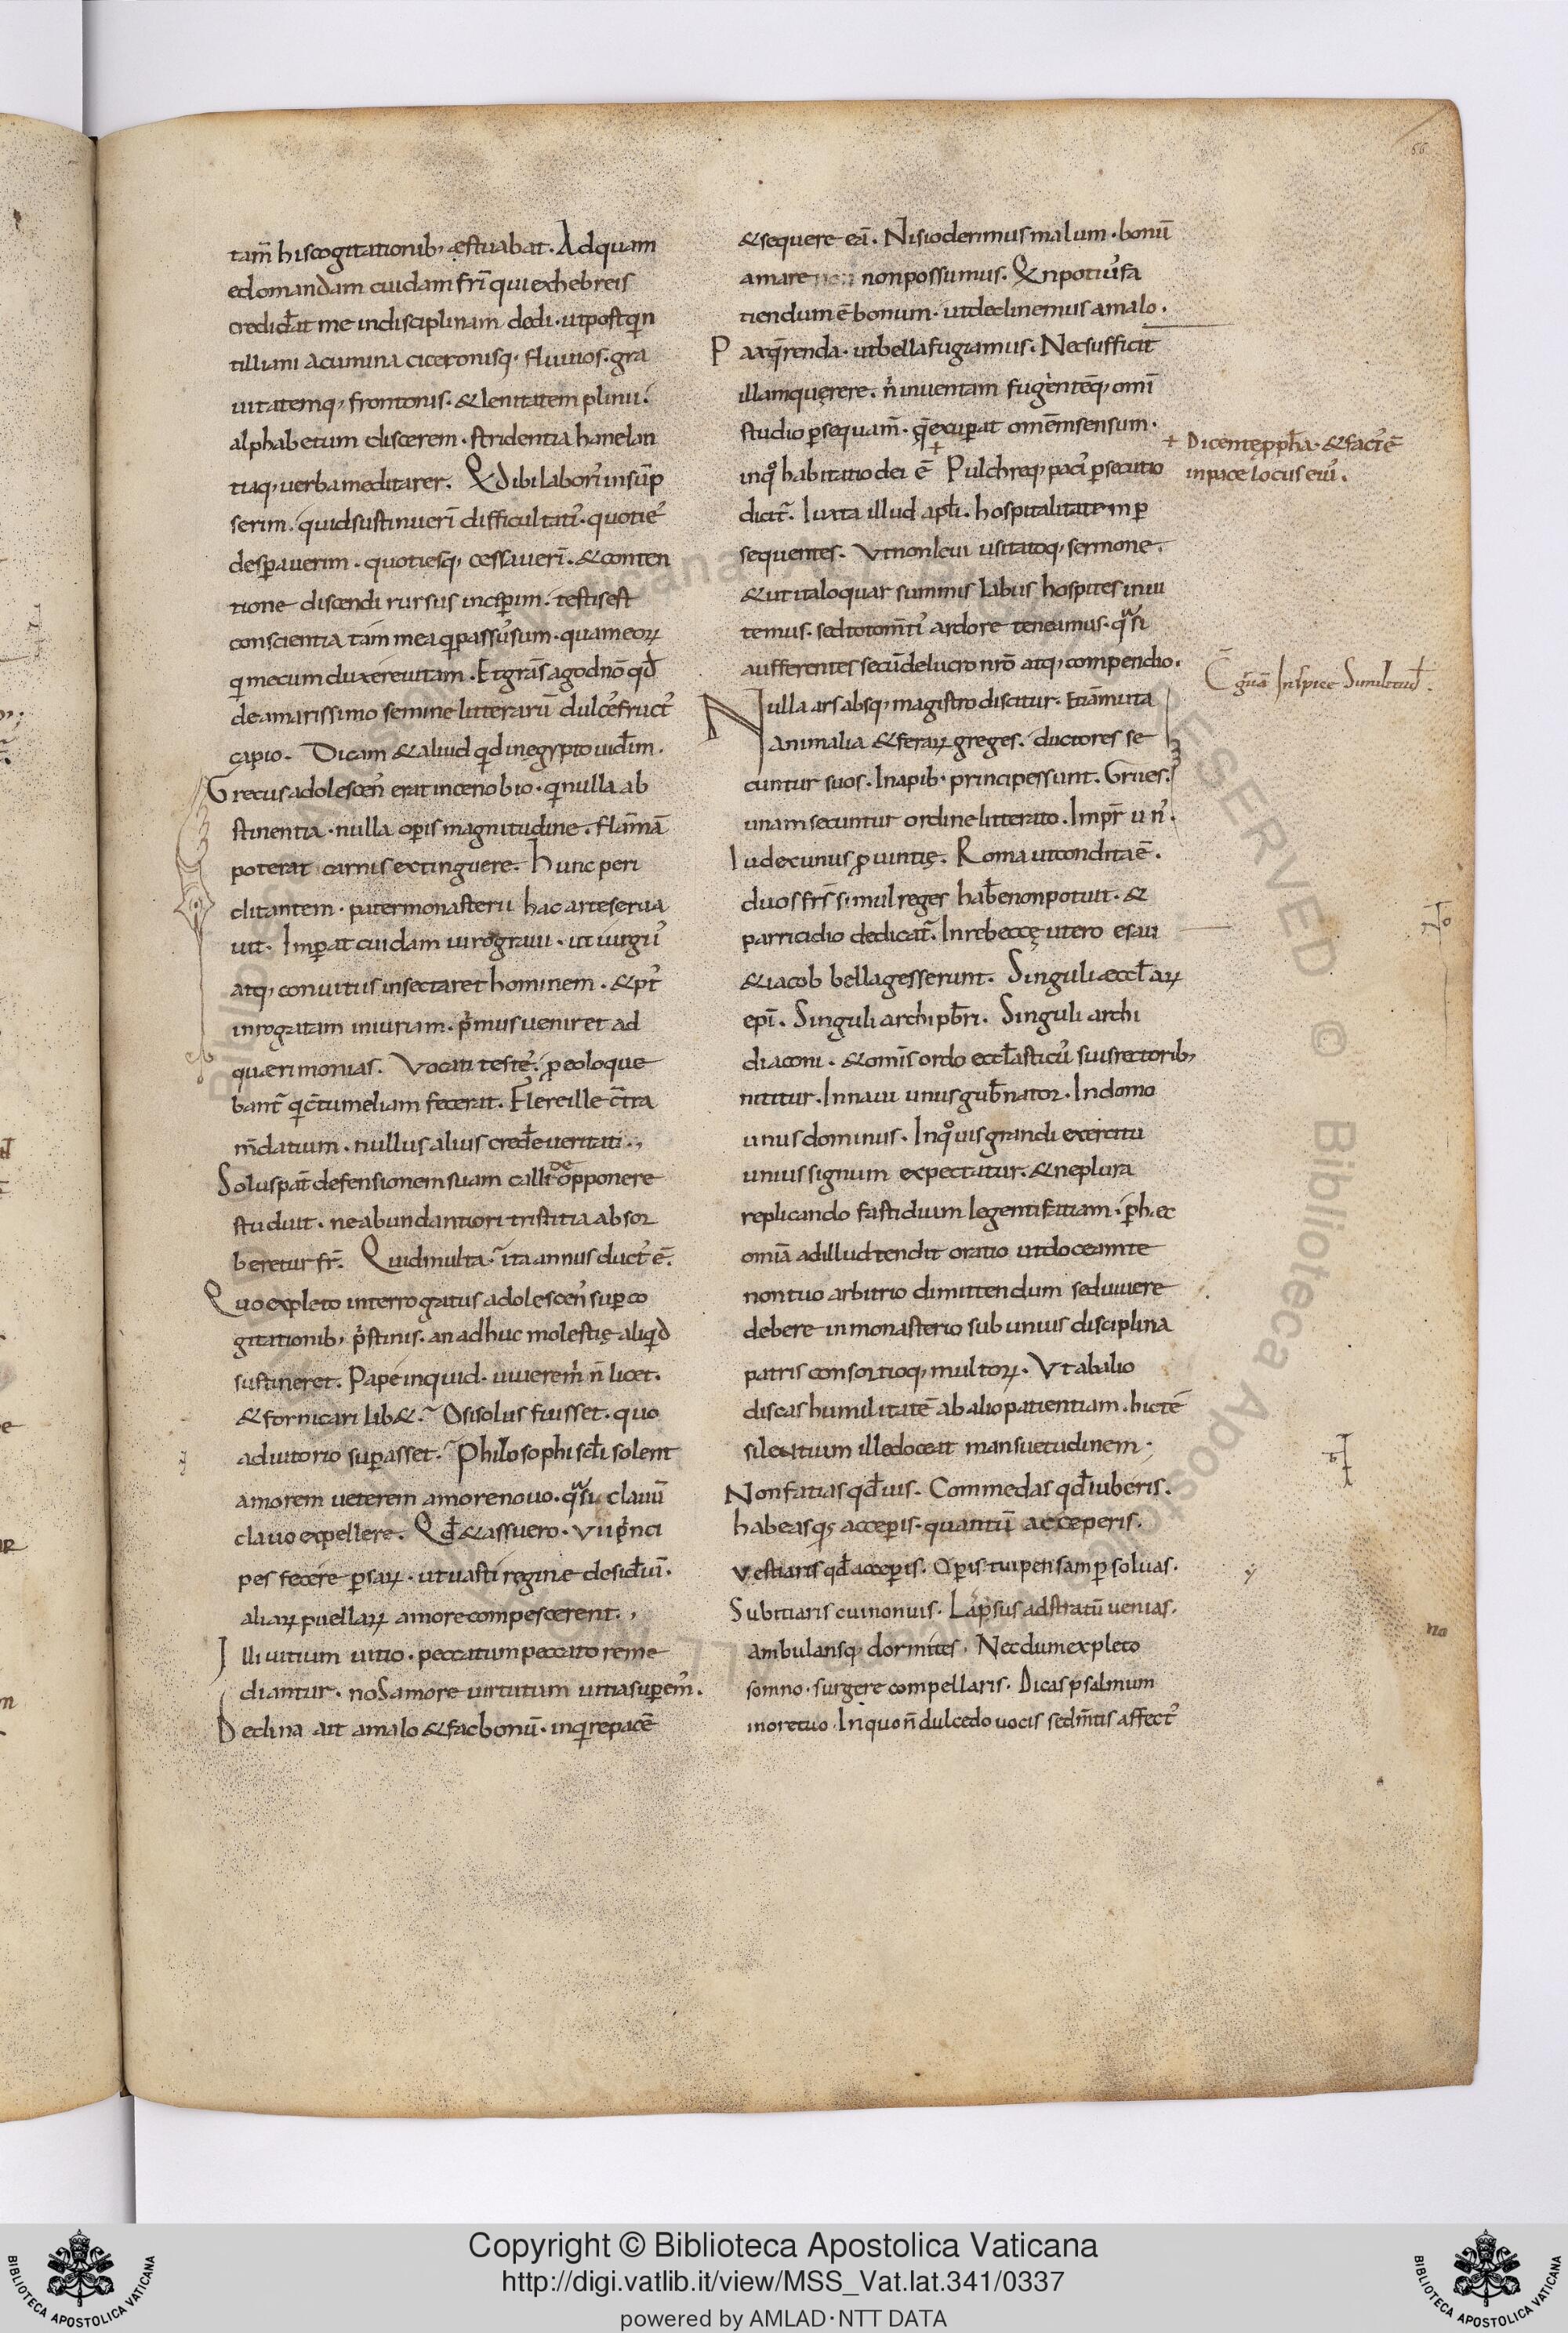 66
tam̄ hiscogitationib; ęstuabat. Adquam
edomandam cuidam frī quiexhebreis
credid̄at me indisciplinam dedi. utpostqin
tiliani acumina ciceronisq; fluuios. gra
uitatemq; frontonis. & lenitatem plinii.
alphabetum discerem. stridentia hanelan
tiaq; uerba meditarer. Qđ ibi laboris insūp
serim. quid sustinuerī difficultatis. quotiēs
despauerim. quotiesq; cessauerī. & conten
tione discendi rursus inceperim. testis est
conscientia tam mea qipassus sum. quam eoꝝ
qi mecum duxere uitam. Et grās ago dnō qđ
de amarissimo semine litterarū dulces fruct
capio. Dicam & aliud qđ inegypto uid̄im.
Grecus adolescens erat incenobio. qi nulla ab
stinentia. nulla opis magnitudine. flām̄ā
poterat carnis extinguere. Hunc peri
clitantem. pater monasterii hac arte serua
uit. Imp̄at cuidam uiro graui. ut iurgiis
atq; conuitiis insectaret hominem. & pt
inrogatam iniuriam. p̄mus ueniret ad
quęrimonias. Vocati testes. p̄ eo loque
bantr̄ qi c̄tumeliam fecerat. Flere ille c̄tra
m̄datium. nullus alius cred̄e ueritati.,
Solus pat̄ defensionem suam callide opponere
studuit. ne abundantiori tristitia absor
beretur fr̄. Quid multa. ita annus duct ē.
Quo expleto interrogatus adolescens sup co
gitationib; p̄stinis. an adhuc molestię aliqid
sustineret. Pape inquid. uiuerem n̄ licet.
& fornicari lib&. O si solus fuisset. quo
adiutorio supasset. Philosophi scl̄i solent
amorem ueterem amore nouo. qasi clauū
clauo expellere. Qđ & assuero. VII p̄nci
pes fecere psaꝝ. ut uasti regine desid̄iū.
aliaꝝ puellaꝝ amore compescerent.,
Illi uitium uitio. peccatum peccato reme
diantur. noS amore uirtutum uitia supem.
Declina ait a malo & fac bonū. inqire pacē
& sequere eā. Nisi oderimus malum. bonū
amare non possumus. Qin potius fa
tiendum ē bonum. ut declinemus a malo.
Pax qrenda. ut bella fugiamus. Nec sufficit
illam quęrere. n̄ inuentam fugientēq; omī
studio psequam̄. q̄ exupat omēm sensum.
inqo habitatio dei ē + Pulchreq; pacis psecutio
dicit̄. Iuxta illud apl̄i. hospitalitatem p
sequentes. Vt non leui usitatoq; sermone.
& ut ita loquar summis labiis hospites inui
temus. sed toto m̄tis ardore teneamus. qasi
aufferentes secū de lucro nrō atq; compendio.
Nulla ars absq; magistro discitur. Etiā muta
animalia & feraꝝ greges. ductores se
cuntur suos. In apib; principes sunt. Grues.
unam secuntur ordine litterato. Impr̄ un.
Iudex unus p̄uintię. Roma ut condita ē.
duos frs̄ simul reges hab̄e non potuit. &
parricidio dedicat̄. In rebeccę utero esau
& iacob bella gesserunt. Singuli æccl̄aꝝ
epī. Singuli archipb̄ri. Singuli archi
diaconi. & omīs ordo eccl̄asticus suis rectorib;
nititur. In naui unus gub̄nator. In domo
unus dominus. Inqouis grandi exercitu
unius signum expectatur. & ne plura
replicando fastidium legenti fatiam. p̄ hęc
omīa ad illud tendit oratio ut doceam te
non tuo arbitrio dimittendum sed uiuere
debere in monasterio sub unius disciplina
patris consortioq; multoꝝ. Vt ab alio
discas humilitatē ab alio patientiam. hic tē
silentium ille doceat mansuetudinem;
Non fatias qđ uis. Commedas qđ iuberis.
habeasq; acceperis. quantū acceperis.
vestiaris qđ acceperis. Opis tui pensam psoluas.
Subitiaris cui non uis. Lapsus ad stratū uenias.
ambulansq; dormites. Necdum expleto
somno. surgere compellaris. Dicas psalmum
in ore tuo. In quo n̄ dulcedo uocis sed m̄tis affect
+ Dicente ppħa. & fact ē
in pace locus eius.
Inspice Similitud̄.
Copyright © Biblioteca Apostolica Vaticana
http://digi.vatlib.it/view/MSS_Vat.lat.341/0337
powered by AMLAD·NTT DATA
BIBLIOTECA APOSTOLICA VATICANA
BIBLIOTECA APOSTOLICA VATICANA